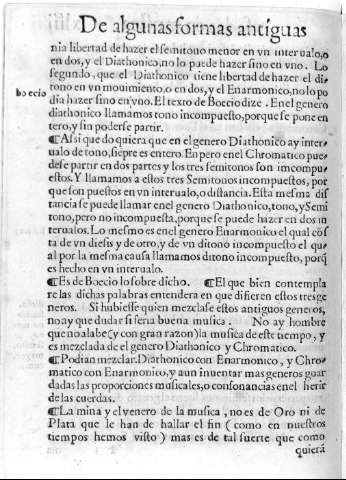 De algunas formas antiguas
nia libertad de hazer el semitono menor en vn interualo, o
en dos, y el Diathonico, no lo puede hazer sino en vno. Lo
segundo, que el Diathonico tiene libertad de hazer el di-
tono en vn mouimiento, o en dos, y el Enarmonico, no lo po
boecio
dia hazer sino en vno. El texto de Boecio dize. En el genero
diathonico llamamos tono incompuesto, porque se pone en
tero, y sin poderse partir.
¶Assi que do quiera que en el genero Diathonico ay inter-
ualo de tono, siẽpre es entero. En pero en el Chromatico pue-
de se partir en dos partes y los tres semitonos son imcompu-
estos. Y llamamos a estos tres Semitonos incompuestos, por
que son puestos en vn interualo, o distancia. Esta mesma dis
tancia se puede llamar en el genero Diathonico, tono, y Semi
tono, pero no incompuesta, porque se puede hazer en dos in
terualos. Lo mesmo es en el genero Enarmonico el qual cõs
ta de vn diesis y de otro, y de vn ditono incompuesto el qu-
al por la mesma causa llamamos ditono incompuesto, porq̃
es hecho en vn interualo.
¶Es de Boecio lo sobre dicho. ¶El que bien contempla
re las dichas palabras entendera en que difieren estos tres ge
neros. Si huuiesse quien mezclasse estos antiguos generos,
no ay que dudar si seria buena musica. No ay hombre
que no alabe (y con gran razon) la musica de este tiempo, y
es mezclada de el genero Diathonico y Chromatico.
¶Podian mezclar. Diathonico con Enarmonico, y Chro-
matico con Enarmonico, y aun inuentar mas generos guar
dadas las proporciones musicales, o consonancias en el herir
de las cuerdas.
¶La mina y el venero de la musica, no es de Oro ni de
Plata que le han de hallar el fin (como en nuestros
tiempos hemos visto) mas es de tal suerte que como
quierã